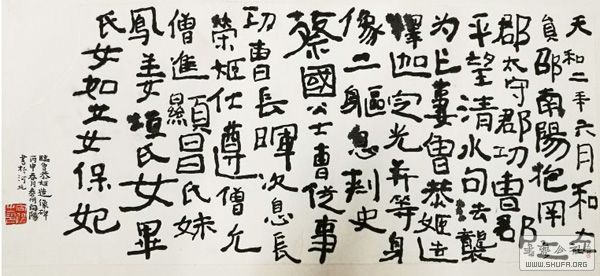 天和二年六月和
員邵南陽把罔上
郡太守郡功曹君
平望清水句去襲
为亡妻曹恭姬造
釋迦定光并等身
像二軀息刺史
蔡國公士曹從事
功曹長暉次息長
榮姬仕遵僧允
僧進 頭昌氏妹
鳳姜 氏女畢
氏女如女女保妃
臨曹恭姬造像碑
丙申春月泰州向陽
書於河北
WWW.SHUFA.ORG